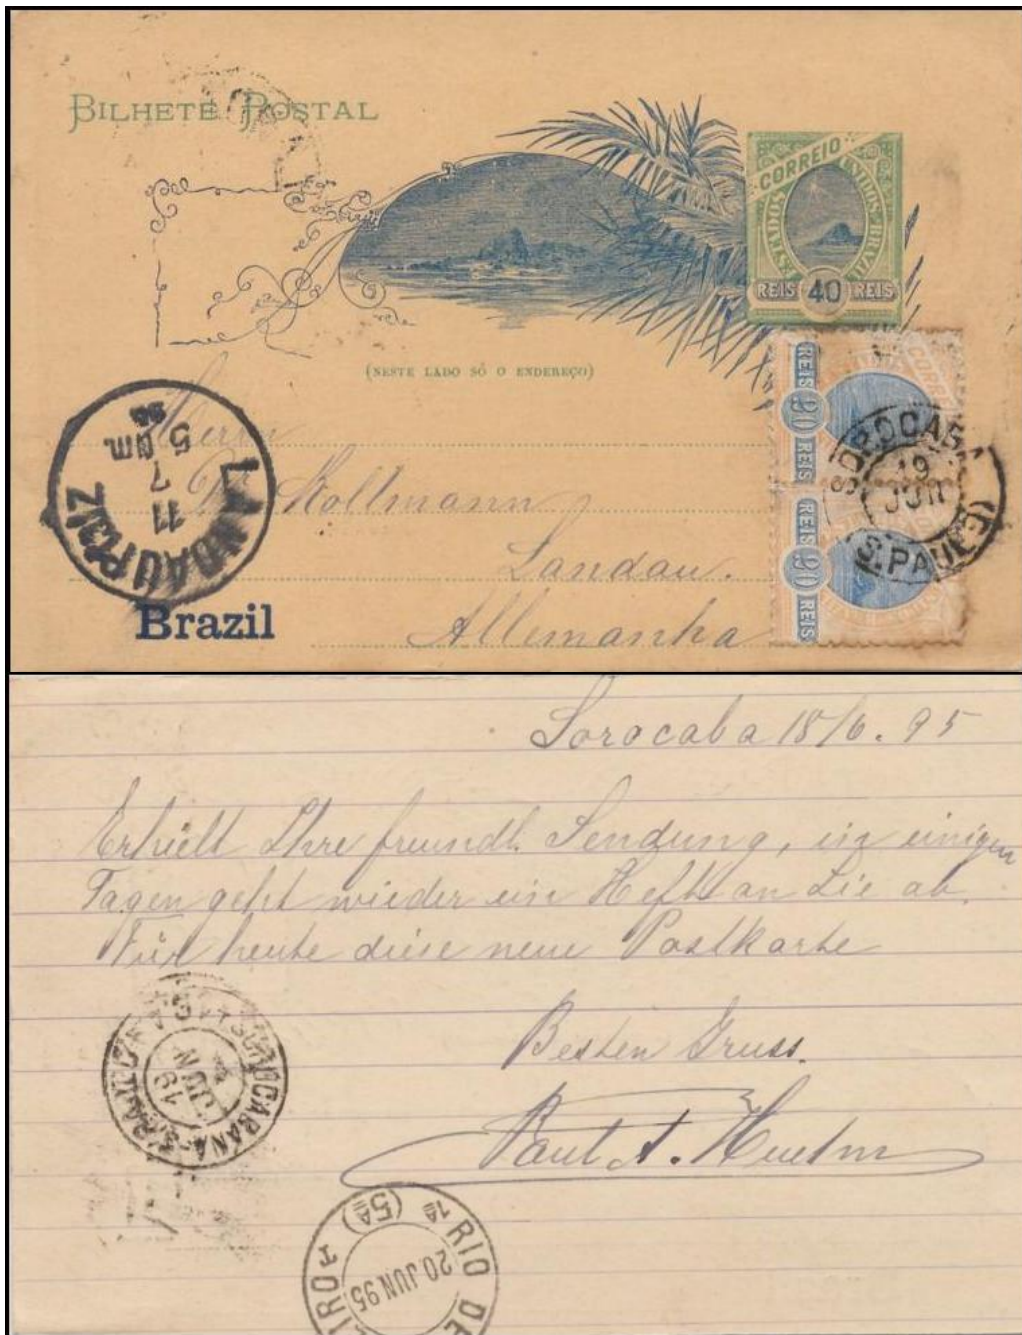 BILHETE POSTAL
CORREIO
ESTADOS UNIDOS BRAZIL
REIS 40 REIS
(NESTE LADO SÓ O ENDEREÇO)
REIS 20 REIS
REIS 20 REIS
SOROCABA
19
JUN
(E.
S. PAULO
LANDAU PFALZ
11
7
5 NM.
Herrn
Dr. Kollmann
Landau.
Allemanha
Brazil
Sorocaba 18/6. 95
Erhielt Ihre freundl. Sendung, in einigen
Tagen geht wieder ein Heft an Sie ab.
Für heute diese neue Postkarte
Besten Gruss.
Paul A.
SOROCABANA
19
JUN
1ª RIO DE
IRO (5ª)
20 JUN 95